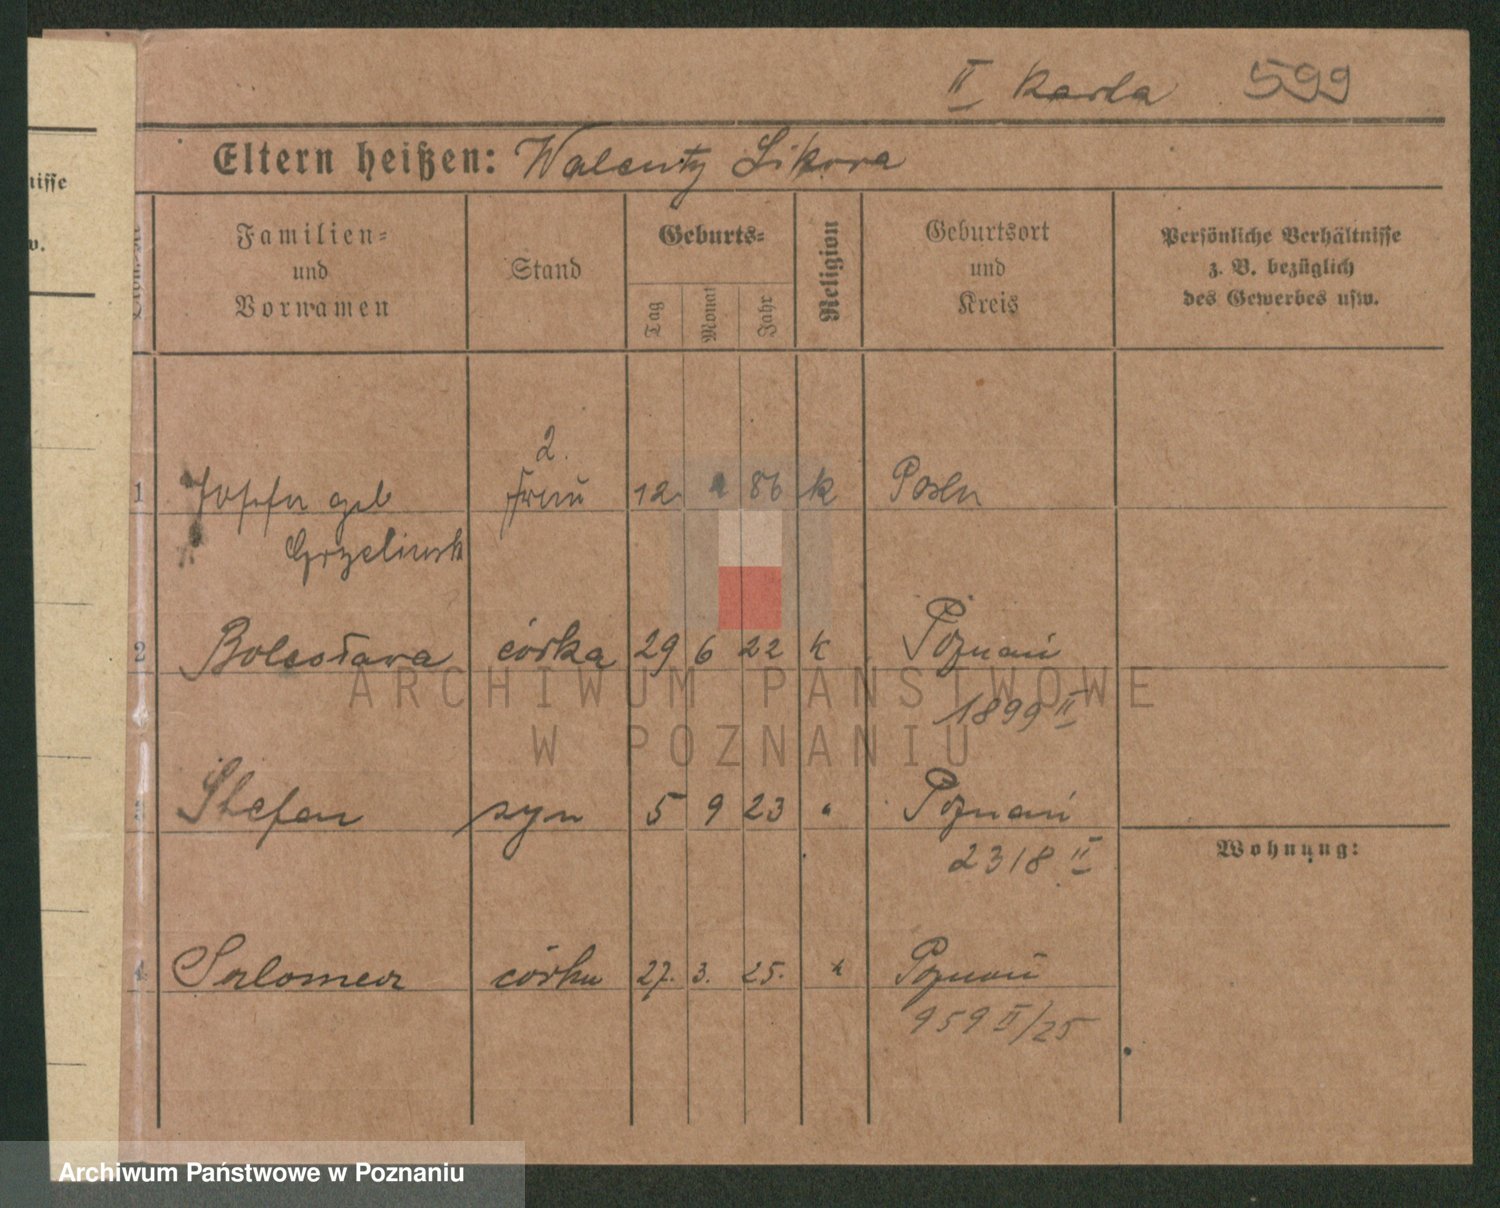 II Karta 599
Eltern heißen: Walenty Sikora
Familien-
und
Vornamen
Stand
Geburts-
Tag
Monat
Jahr
Religion
Geburtsort
und
Kreis
Persönliche Verhältnisse
z. B. bezüglich
des Gewerbes usw.
2.
1 Josefa geb Frau 12. 86 k Posen
2 Bolesława córka 29 6 22 k Poznań
1899 II
Stefan syn 5 9 23 " Poznań
2318 II
Wohnung:
4 Salomea córka 27. 3. 25. k Poznań
959 II/25
nisse
w.
ARCHIWUM PAŃSTWOWE
W POZNANIU
Archiwum Państwowe w Poznaniu